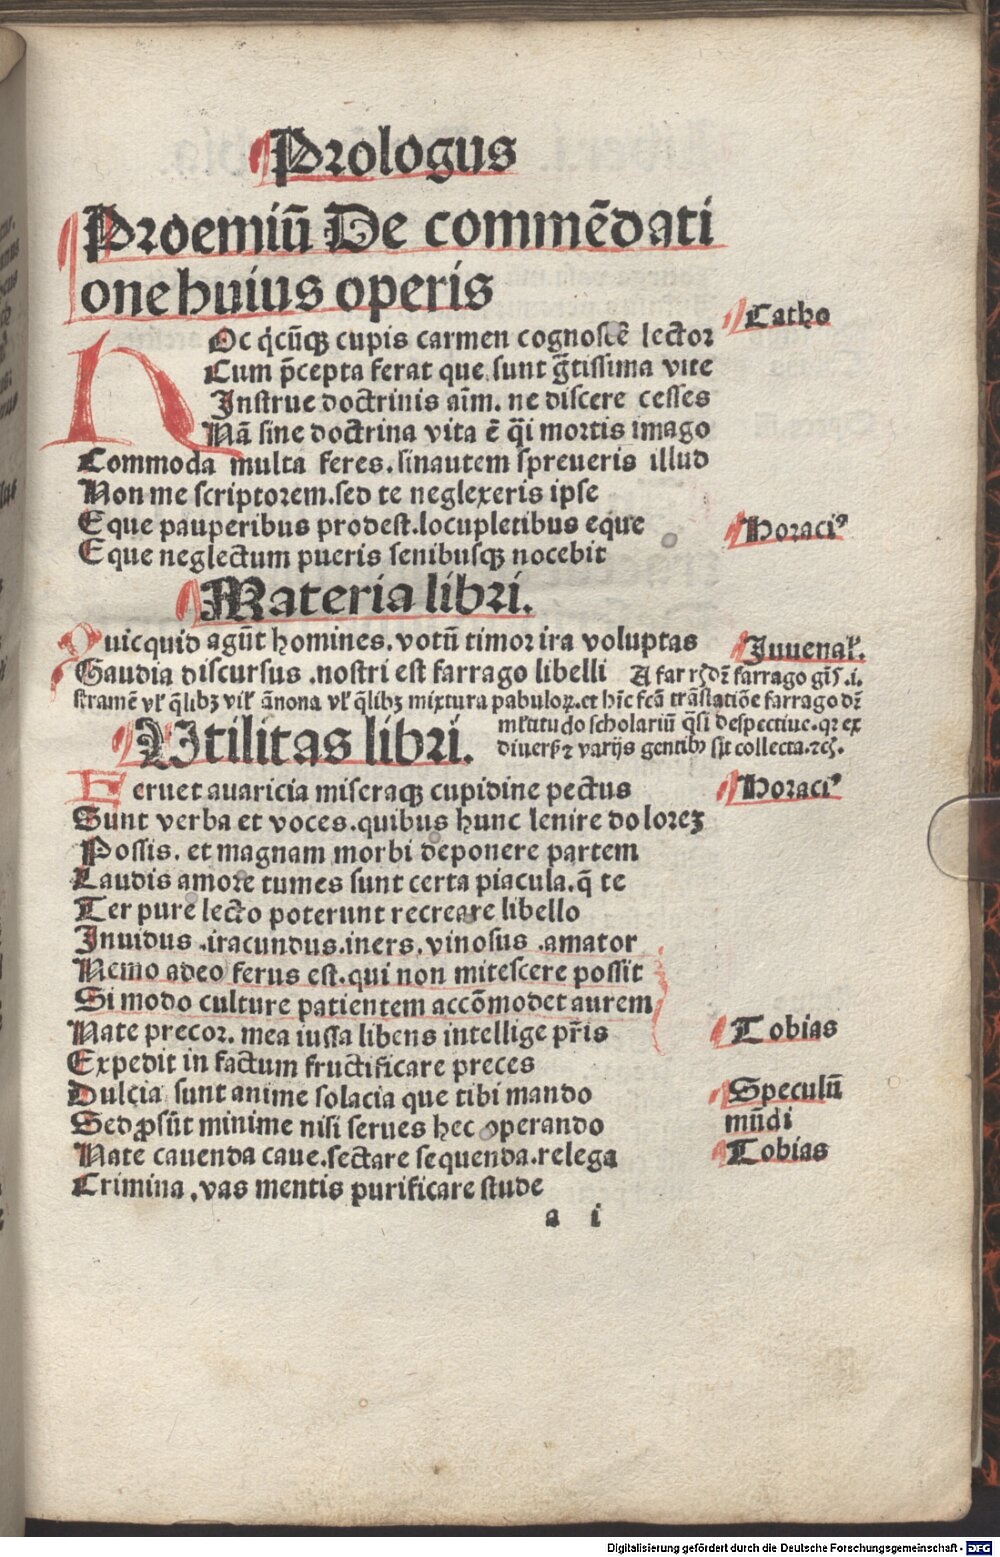 Prologus
Proemiū De commēdati
one huius operis
Catho
HOc q̇cūqꝫ cupis carmen cognoscē lector
Cum p̄cepta ferat que sunt g̃tissima vite
Instrue doctrinis aīm. ne discere cesses
Nā sine doctrina vita ē q̇̄i mortis imago
Commoda multa feres. sin autem spreueris illud
Non me scriptorem. sed te neglexeris ipse
Eque pauperibus prodest. locupletibus eque
Horaciꝰ
Eque neglectum pueris senibusqꝫ nocebit
Materia libri.
Quicquid agūt homines. votū timor ira voluptas
Iuuenał.
Gaudia discursus .nostri est farrago libelli
A far
farrago
.i.
stramē vł q̄libꝫ vił ānona vł q̄libꝫ mixtura pabuloꝝ. et hīc fcā trāslatiōe farrago dr̄
młtitudo scholariū q̄si despectiue. qꝛ ex
Utilitas libri.
diuersꝭ varijs gentibꝰ sit collecta. ⁊cꝭ.
Feruet auaricia miseraqꝫ cupidine pectus
Horaciꝰ
Sunt verba et voces. quibus hunc lenire dolorez
Possis. et magnam morbi deponere partem
Laudis amore tumes sunt certa piacula. q̄ te
Ter pure lecto poterunt recreare libello
Inuidus .iracundus. iners. vinosus .amator
Nemo adeo ferus est. qui non mitescere possit
Si modo culture patientem accōmodet aurem
Nate precor. mea iussa libens intellige pr̄is
Tobias
Expedit in factum fructificare preces
Dulcia sunt anime solacia que tibi mando
Speculū
Sed ꝓsūt minime nisi serues hec oꝑando
mūdi
Nate cauenda caue. sectare sequenda. relega
Tobias
Crimina . vas mentis purificare stude
a i
Digitalisierung gefördert durch die Deutsche Forschungsgemeinschaft - DFG